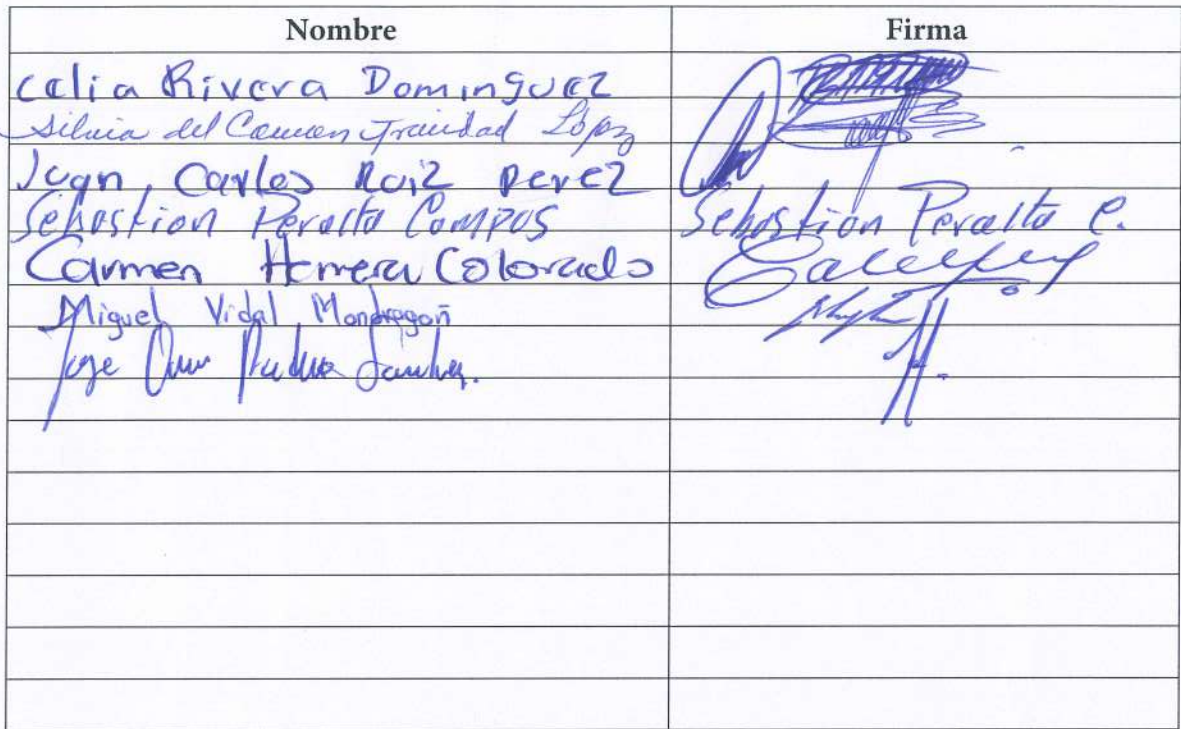 Nombre Firma
Celia Rivera Dominguez
Silvia del Carmen Trinidad López
Juan Carlos Ruiz Perez
Sebastian Peralta Campos Sebastian Peralta C.
Carmen Herrera Colorado
Miguel Vidal Mondragon
Jose Sanchez.